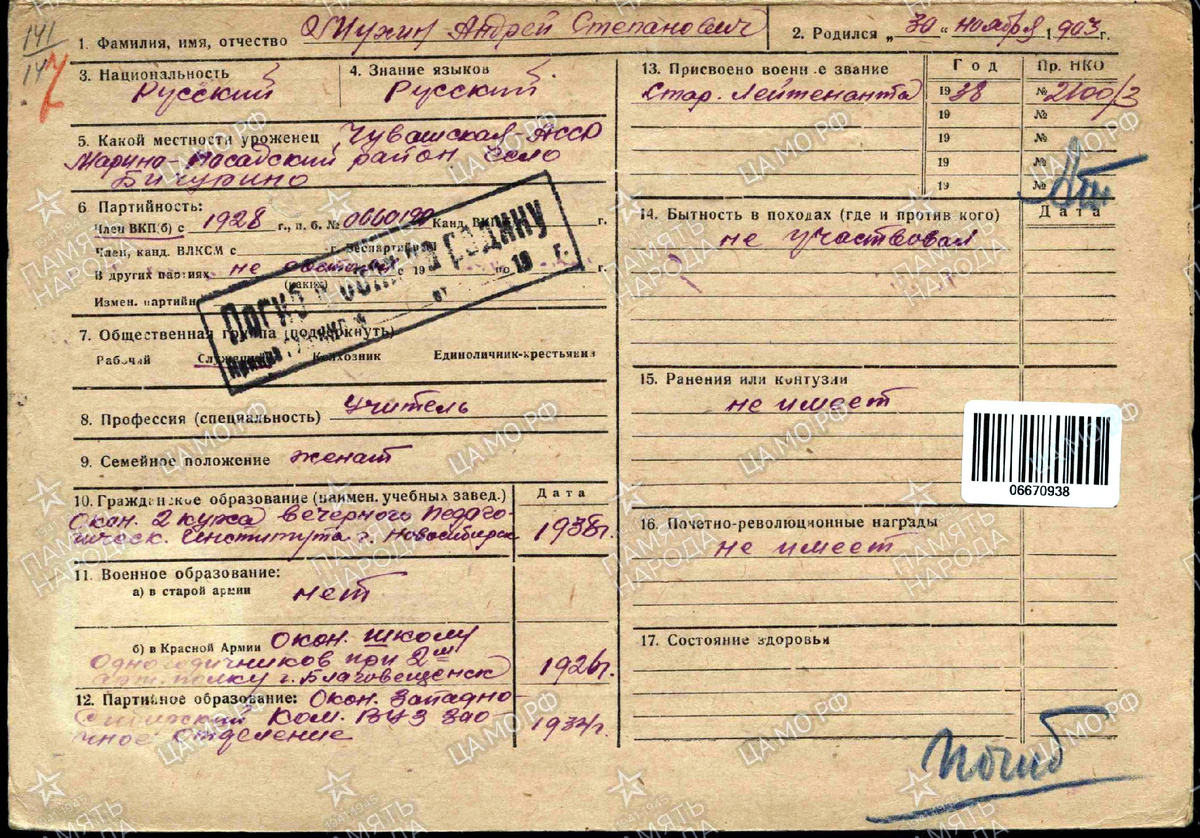 141
147
1. Фамилия, имя, отчество Мухин Андрей Степанович
2. Родился „30“ ноября 1903 г.
3. Национальность Русский
4. Знание языков Русский
5. Какой местности уроженец Чувашская АССР
Марино-Посадский район село
Бичурино
6. Партийность:
Член ВКП(б) с 1928 г., п. б. № 0660190 Канд. ВКП г.
Член, канд. ВЛКСМ с г. Беспартийный
В других партиях не состоял с 19 по 19 г.
(каких)
Измен. партийн
Погиб в боях за родину
Приказ ГУК НКО № от
7. Общественная группа (подчеркнуть)
Рабочий Служащий Колхозник Единоличник-крестьянин
8. Профессия (специальность) учитель
9. Семейное положение женат
10. Гражданское образование (наимен. учебных завед.) Дата
Окон. 2 курса вечернего Педаго-
гическ. Института г. Новосибирск 1938г.
11. Военное образование:
а) в старой армии нет
б) в Красной Армии Окон. школу
одногодичников при 2м
арт. полку г. Благовещенск 1926г.
12. Партийное образование: Окон. Западно-
Сибирский Ком. ВУЗ зао
чное отделение 1934г.
13. Присвоено военное звание Год Пр. НКО
Стар. Лейтенанта 1938 № 2100/3
19 №
19 №
19 №
19 №
14. Бытность в походах (где и против кого) Дата
не участвовал
15. Ранения или контузии
не имеет
06670938
16. Почетно-революционные награды
не имеет
17. Состояние здоровья
Погиб
ЦАМО РФ
ПАМЯТЬ НАРОДА
1941-1945